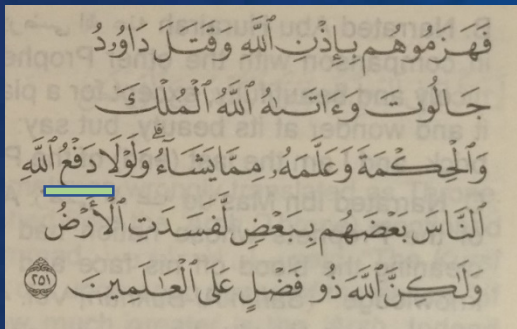 فَهَزَمُوهُم بِإِذْنِ ٱللَّهِ وَقَتَلَ دَاوُۥدُ
جَالُوتَ وَءَاتَىٰهُ ٱللَّهُ ٱلْمُلْكَ
وَٱلْحِكْمَةَ وَعَلَّمَهُۥ مِمَّا يَشَآءُ ۗ وَلَوْلَا دَفْعُ ٱللَّهِ
ٱلنَّاسَ بَعْضَهُم بِبَعْضٍ لَّفَسَدَتِ ٱلْأَرْضُ
وَلَٰكِنَّ ٱللَّهَ ذُو فَضْلٍ عَلَى ٱلْعَٰلَمِينَ ٢٥١